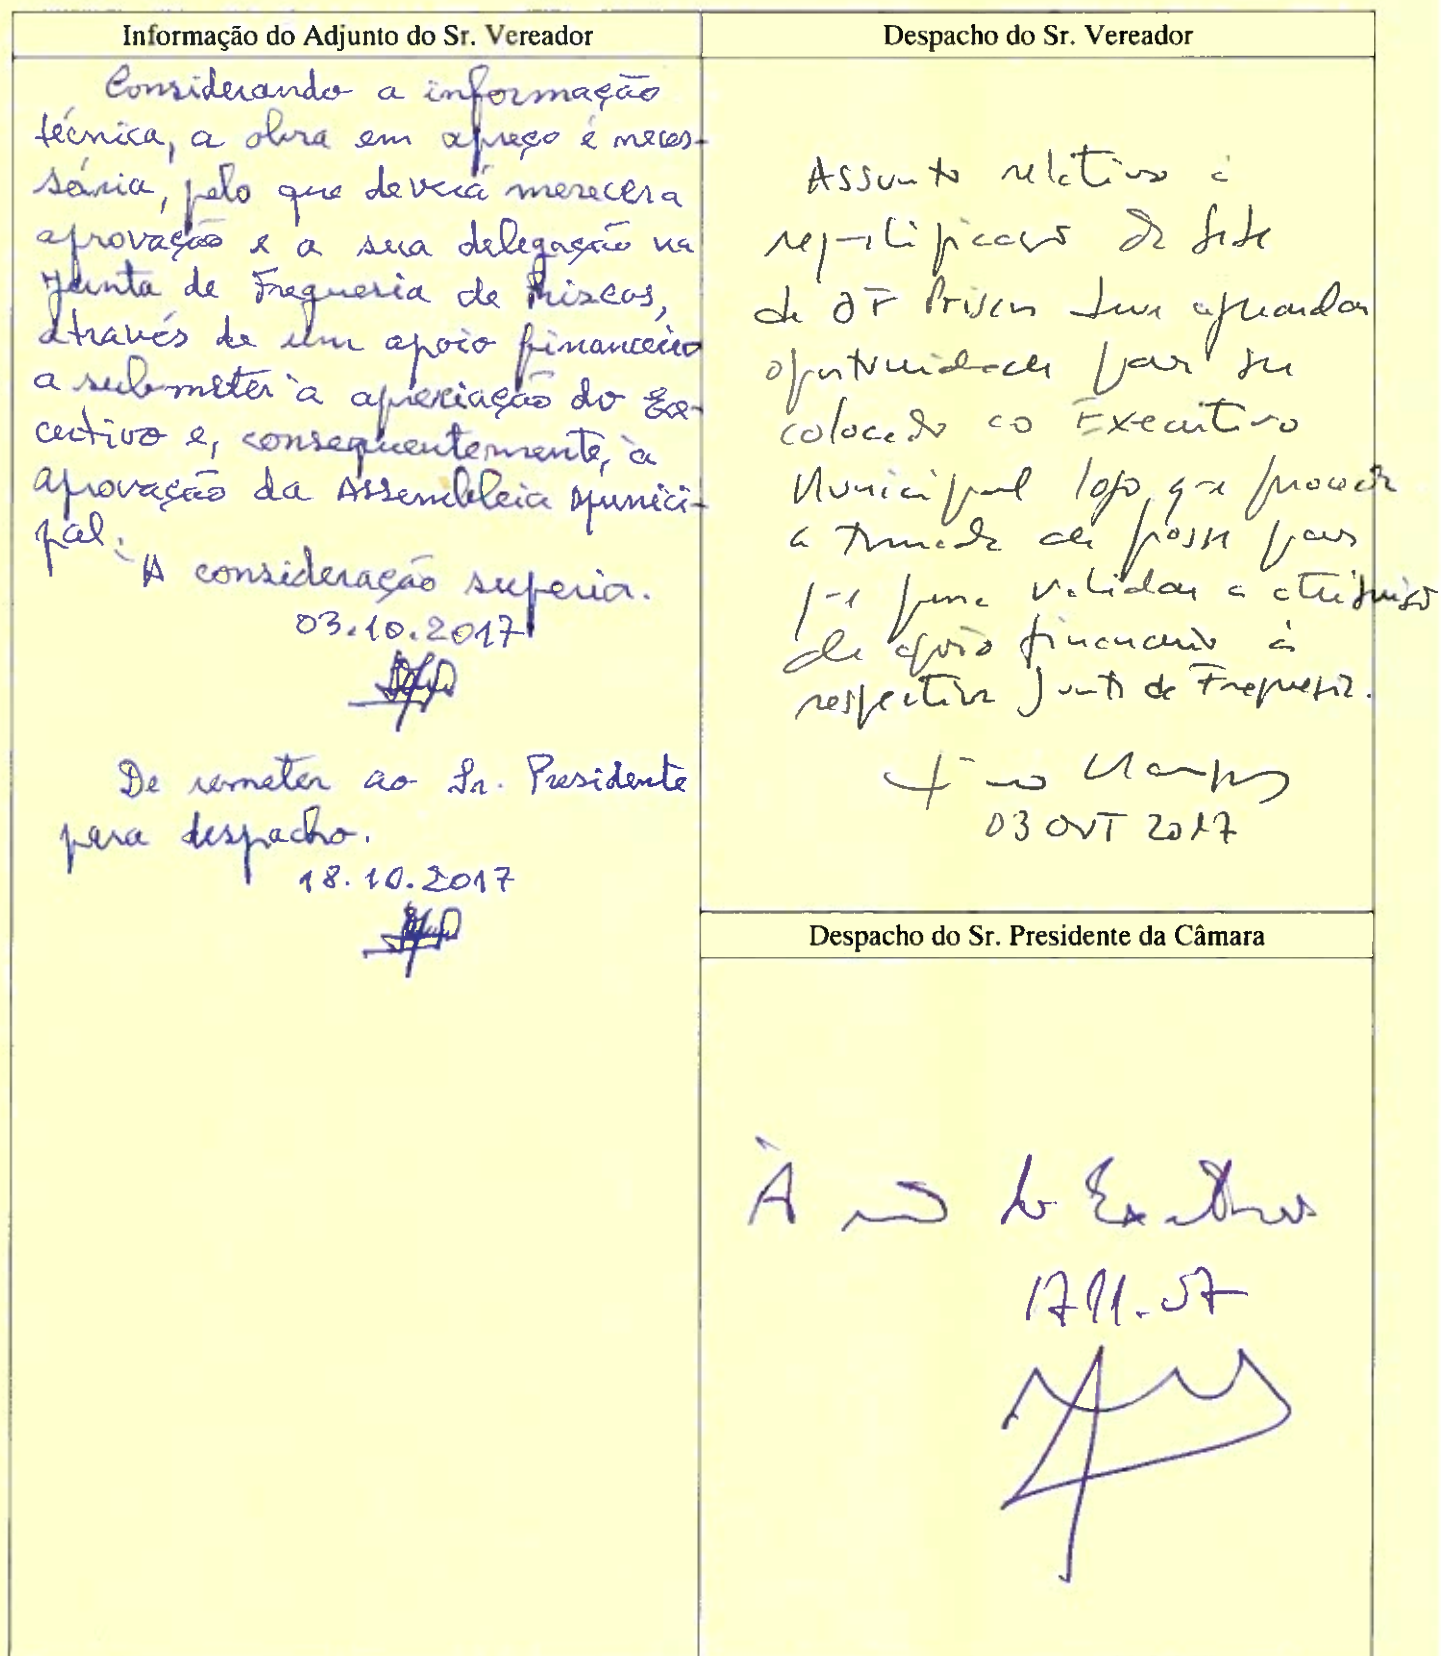 Informação do Adjunto do Sr. Vereador
Considerando a informação
técnica, a obra em apreço é neces-
sária, pelo que deverá merecer a
aprovação e a sua delegação na
Junta de Freguesia de Priscos,
através de um apoio financeiro
a submeter à apreciação do Exe-
cutivo e, consequentemente, à
aprovação da Assembleia Munici-
pal.
À consideração superior.
03.10.2017
De remeter ao Sr. Presidente
para despacho.
18.10.2017
Despacho do Sr. Vereador
Assunto relativo à
requalificação da Sede
da JF Priscos deve aguardar
oportunidade para ser
colocado ao Executivo
Municipal logo que proceda
a tomada de posse para
que possa validar a atribuição
de apoio financeiro à
respectiva Junta de Freguesia.
03 OUT 2017
Despacho do Sr. Presidente da Câmara
À do Executivo